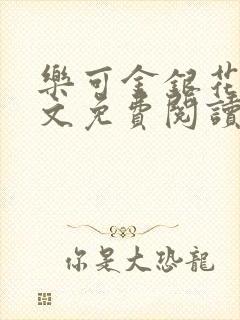 樂可金銀花
文免費閱讀
你是大恐龍